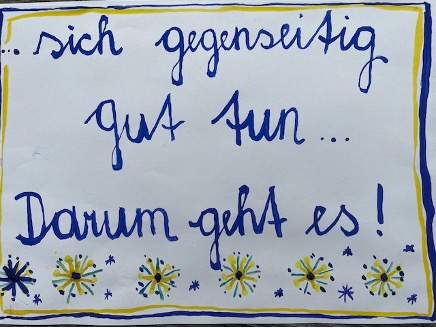 ...sich gegenseitig
gut tun...
Darum geht es!